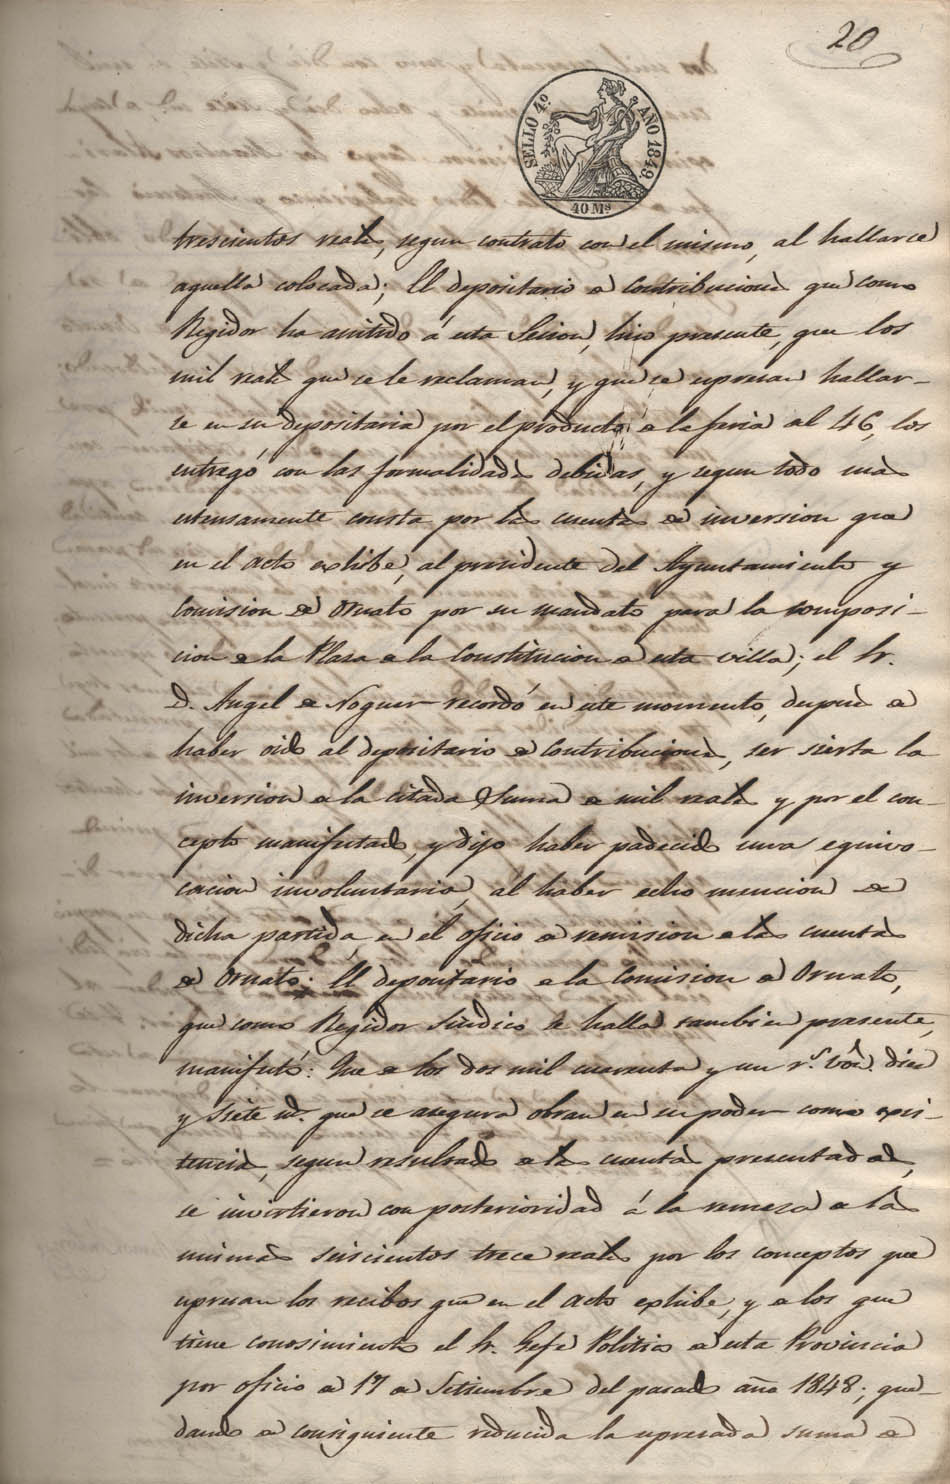 20
SELLO 4º AÑO 1849.
40 Ms
trescientos reales, segun contrato con el mismo, al hallarce
aquella colocada; El depositario de Contribuciones que como
Regidor ha asistido á esta Secion, hiso presente, que los
mil reales que se le reclaman, y que se espresan hallar-
se en su depositaria por el producto de la feria del 46, los
entregó con las formalidades debidas, y segun todo mas
estensamente consta por las cuentas de inversion que
en el acto exhibe, al presidente del Ayuntamiento y
Comision de Ornato por su mandato para la composi-
cion de la Plasa de la Constitucion de esta villa; el Sr.
D. Angel de Noguer recordó en este momento, despues de
haber oido al depositario de Contribuciones, ser sierta la
inversion de la citada Suma de mil reales y por el con-
cepto manifestado, y dijo haber padecido una equivo-
cacion involuntaria, al haber echo mencion de
dicha partida, en el oficio de remision de las cuentas
de Ornato: El depositario de la Comision de Ornato,
que como Regidor Sindico se halla tambien presente,
manifestó: Que de los dos mil cuarenta y un rs. von. dies
y siete ms. que se asegura obran en su poder como exis-
tencia, segun resultado de las cuentas presentadas,
se invirtieron con posterioridad á la remesa de las
mismas seiscientos trece reales por los conceptos que
espresan los recibos que en el acto exhibe, y de los que
tiene conosimiento el Sr. Gefe Politico de esta Provincia
por oficio de 17 de Setiembre del pasado año 1848; que-
dando de consiguiente reducida la espresada suma de